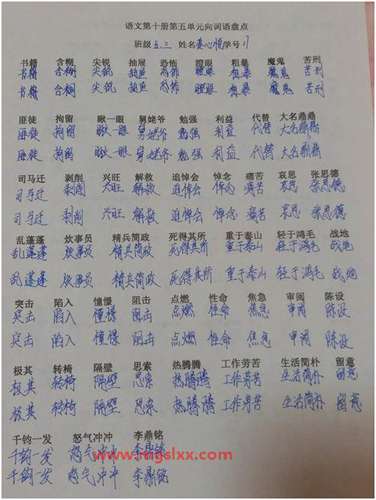 语文第十册第五单元向词语盘点
班级 五.三 姓名 学号 11
书籍 含糊 尖锐 抽屉 恐怖 瞪眼 粗暴 魔鬼 苦刑
书籍 含糊 尖锐 抽屉 恐怖 瞪眼 粗暴 魔鬼 苦刑
书籍 含糊 尖锐 抽屉 恐怖 瞪眼 粗暴 魔鬼 苦刑
匪徒 拘留 瞅一眼 舅姥爷 勉强 利益 代替 大名鼎鼎
匪徒 拘留 瞅一眼 舅姥爷 勉强 利益 代替 大名鼎鼎
匪徒 拘留 瞅一眼 舅姥爷 勉强 利益 代替 大名鼎鼎
司马迁 剥削 兴旺 解救 追悼会 悼念 痛苦 哀思 张思德
司马迁 剥削 兴旺 解救 追悼会 悼念 痛苦 哀思 张思德
司马迁 剥削 兴旺 解救 追悼会 悼念 痛苦 哀思 张思德
乱蓬蓬 炊事员 精兵简政 死得其所 重于泰山 轻于鸿毛 战地
乱蓬蓬 炊事员 精兵简政 死得其所 重于泰山 轻于鸿毛 战地
乱蓬蓬 炊事员 精兵简政 死得其所 重于泰山 轻于鸿毛 战地
突击 陷入 憧憬 阻击 点燃 性命 焦急 审阅 陈设
突击 陷入 憧憬 阻击 点燃 性命 焦急 审阅 陈设
突击 陷入 憧憬 阻击 点燃 性命 焦急 审阅 陈设
极其 转椅 隔壁 思索 热腾腾 工作劳苦 生活简朴 留意
极其 转椅 隔壁 思索 热腾腾 工作劳苦 生活简朴 留意
极其 转椅 隔壁 思索 热腾腾 工作劳苦 生活简朴 留意
千钧一发 怒气冲冲 李鼎铭
千钧一发 怒气冲冲 李鼎铭
千钧一发 怒气冲冲 李鼎铭